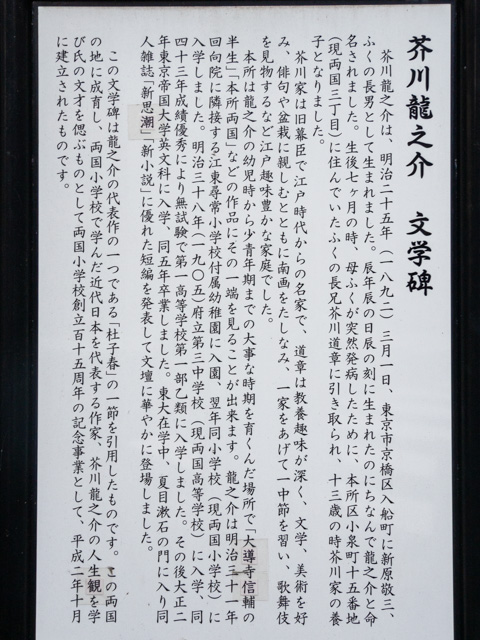 芥川龍之介　文学碑
芥川龍之介は、明治二十五年（一八九二）三月一日、東京市京橋区入船町に新原敬三、
ふくの長男として生まれました。辰年辰の日辰の刻に生まれたのにちなんで龍之介と命
名されました。生後七ヶ月の時、母ふくが突然発病したために、本所区小泉町十五番地
（現両国三丁目）に住んでいたふくの長兄芥川道章に引き取られ、十三歳の時芥川家の養
子となりました。
芥川家は旧幕臣で江戸時代からの名家で、道章は教養趣味が深く、文学、美術を好
み、俳句や盆栽に親しむとともに南画をたしなみ、一家をあげて一中節を習い、歌舞伎
を見物するなど江戸趣味豊かな家庭でした。
本所は龍之介の幼児時から少青年期までの大事な時期を育くんだ場所で「大導寺信輔の
半生」「本所両国」などの作品にその一端を見ることが出来ます。龍之介は明治三十一年
回向院に隣接する江東尋常小学校付属幼稚園に入園、翌年同小学校（現両国小学校）に
入学しました。明治三十八年（一九〇五）府立第三中学校（現両国高等学校）に入学、同
四十三年成績優秀により無試験で第一高等学校第一部乙類に入学しました。その後大正二
年東京帝国大学英文科に入学、同五年卒業しました。東大在学中、夏目漱石の門に入り同
人雑誌「新思潮」「新小説」に優れた短編を発表して文壇に華やかに登場しました。
この文学碑は龍之介の代表作の一つである「杜子春」の一節を引用したものです。この両国
の地に成育し、両国小学校で学んだ近代日本を代表する作家、芥川龍之介の人生観を学
び氏の文才を偲ぶものとして両国小学校創立百十五周年の記念事業として、平成二年十月
に建立されたものです。